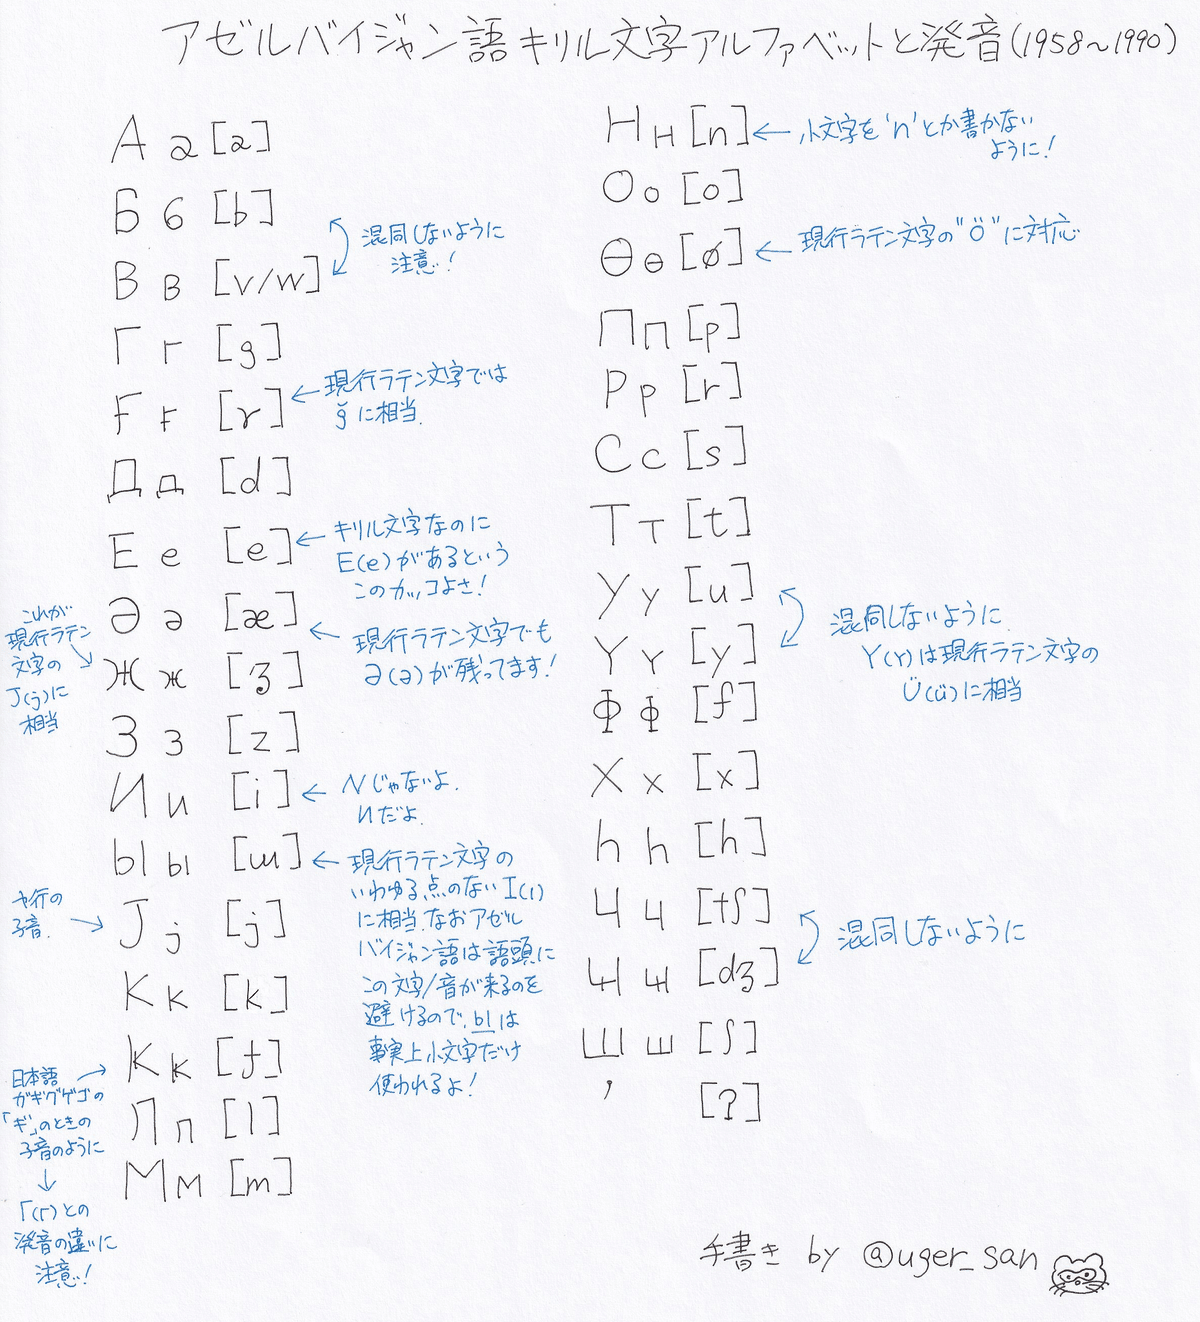 アゼルバイジャン語キリル文字アルファベットと発音(1958〜1990)
А а [a]
Б б [b]
混同しないように
注意!
В в [v/w]
Г г [g]
Ғ ғ [ɣ]
現行ラテン文字では
ğに相当.
Д д [d]
Е е [e]
キリル文字なのに
E(e)があるという
このカッコよさ!
Ә ә [æ]
現行ラテン文字でも
Ə(ə)が残ってます!
これが
現行ラテン
文字の
J(j)に
相当
Ж ж [ʒ]
З з [z]
И и [i]
Nじゃないよ.
Иだよ.
Ы ы [ɯ]
現行ラテン文字の
いわゆる、点のないI(ı)
に相当.なおアゼル
バイジャン語は語頭に
この文字/音が来るのを
避けるので、ыは
事実上小文字だけ
使われるよ!
ヤ行の
子音.
Ј ј [j]
К к [k]
Ҝ ҝ [ɟ]
日本語
ガギグゲゴの
「ギ」のときの
子音のように
Г(г)との
発音の違いに
注意!
Л л [l]
М м [m]
Н н [n]
小文字を'n'とか書かない
ように!
О о [o]
Ө ө [ø]
現行ラテン文字の"Ö"に対応
П п [p]
Р р [r]
С с [s]
Т т [t]
У у [u]
混同しないように
Y(ү)は現行ラテン文字の
Ü(ü)に相当
Ү ү [y]
Ф ф [f]
Х х [x]
Һ һ [h]
Ч ч [tʃ]
混同しないように
Ҹ ҹ [dʒ]
Ш ш [ʃ]
' [?]
手書き by @uger_san